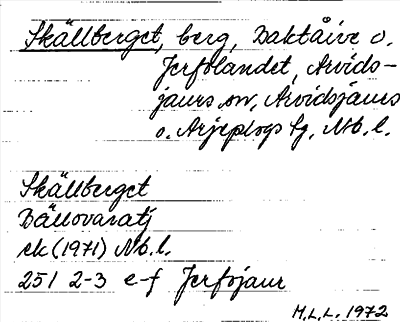 Skällberget, berg, Baktåive o.
Jerfolandet, Arvids-
jaurs sn, Arvidsjaurs
o. Arjeplogs tg, Nb. l.
Skällberget
Bällovaratj
ek (1971) Nb. l.
25 I 2-3 e-f Jerfojaur
M.L.L. 1972